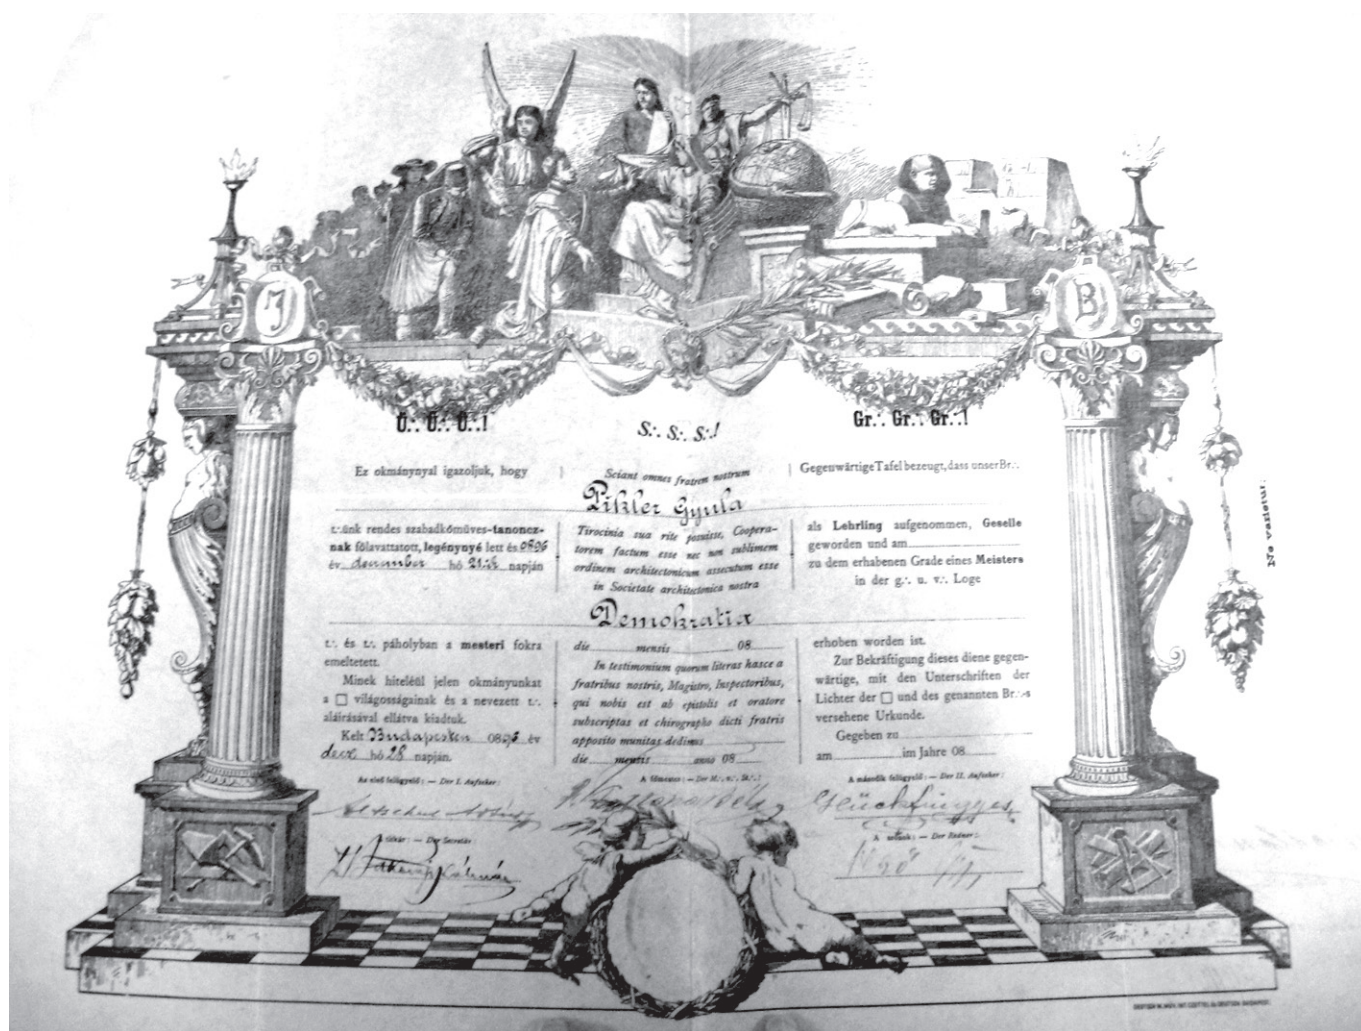 J
B
Ü∴ Ü∴ Ü∴!
Ez okmánynyal igazoljuk, hogy
t∴ünk rendes szabadkőműves-tanoncz-
nak fölavattatott, legénynyé lett és 0896
év december hó 21-ik napján
t∴ és t∴ páholyban a mesteri fokra
emeltetett.
Minek hiteléül jelen okmányunkat
a □ világosságainak és a nevezett t∴
aláirásával ellátva kiadtuk.
Kelt Budapesten 0896 év
dec hó 28 napján.
S∴ S∴ S∴!
Sciant omnes fratrem nostrum
Pikler Gyula
Tirocinia sua rite posuisse, Coopera-
torem factum esse nec non sublimem
ordinem architectonicum assecutum esse
in Societate architectonica nostra
Demokratia
die mensis 08
In testimonium quorum literas hasce a
fratribus nostris, Magistro, Inspectoribus,
qui nobis est ab epistolis et oratore
subscriptas et chirographo dicti fratris
apposito munitas dedimus
die mensis anno 08
Gr∴ Gr∴ Gr∴!
Gegenwärtige Tafel bezeugt, dass unser Br∴
als Lehrling aufgenommen, Geselle
geworden und am
zu dem erhabenen Grade eines Meisters
in der g∴ u. v∴ Loge
erhoben worden ist.
Zur Bekräftigung dieses diene gegen-
wärtige, mit den Unterschriften der
Lichter der □ und des genannten Br∴s
versehene Urkunde.
Gegeben zu
am im Jahre 08
Az első felügyelő: — Der I. Aufseher:
A főmester: — Der M∴ v∴ St∴:
A második felügyelő: — Der II. Aufseher:
A titkár: — Der Secretär:
A szónok: — Der Redner:
Ne varietur: